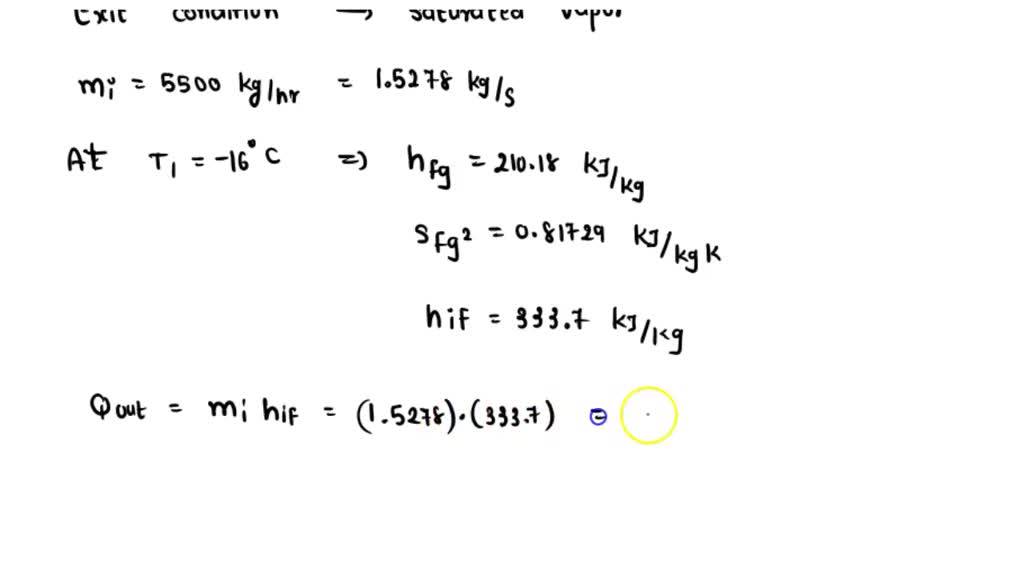 Exit condition => saturated vapor
mi = 5500 kg/hr = 1.5278 kg/s
At T1 = -16°C => hfg = 210.18 kJ/kg
sfg2 = 0.81729 kJ/kg K
hif = 333.7 kJ/kg
Qout = mi hif = (1.5278)·(333.7) =